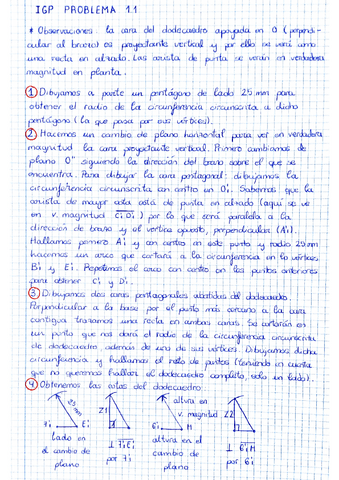 IGP PROBLEMA 1.1
* Observaciones: la cara del dodecaedro apoyada en O (perpendi-
cular al brazo) es proyectante vertical y por ello se verá como
una recta en alzado. Las arista de punta se verán en verdadera
magnitud en planta.
1 Dibujamos a parte un pentágono de lado 25 mm para
obtener el radio de la circunferencia circunscrita a dicho
pentágono (la que pasa por sus vértices).
2 Hacemos un cambio de plano horizontal para ver en verdadera
magnitud la cara proyectante vertical. Primero cambiamos de
plano O'' siguiendo la dirección del brazo sobre el que se
encuentra. Para dibujar la cara pentagonal: dibujamos la
circunferencia circunscrita con centro un O'1. Sabemos que la
arista de mayor cota está de punta en alzado (aquí se ve
en v. magnitud C'1D'1) por lo que será paralela a la
dirección de brazo y el vértice opuesto, perpendicular (A'1).
Hallamos primero A'1 y con centro en este punto y radio 25mm
hacemos un arco que cortará a la circunferencia en lo vértices
B'1 y E'1. Repetimos el arco con centro en los puntos anteriores
para obtener C'1 y D'1.
3 Dibujamos dos caras pentagonales abatidas del dodecaedro.
Perpendicular a la base por el punto más cercano a la cara
contigua trazamos una recta en ambas caras. Se cortarán en
un punto que nos dará el radio de la circunferencia circunscrita
de dodecaedro además de uno de sus vértices. Dibujamos dicha
circunferencia y hallamos el resto de puntos (teniendo en cuenta
que no queremos hallar el dodecaedro completo, solo un lado).
4 Obtenemos las cotas del dodecaedro:
25mm
Z1
altura en
v. magnitud
Z2
7'1 E'1
⊥ 7'1E'1
6'1 M
⊥ 6'1M
lado en
el cambio de
plano
por 7'1
altura en el
cambio de
plano
por 6'1